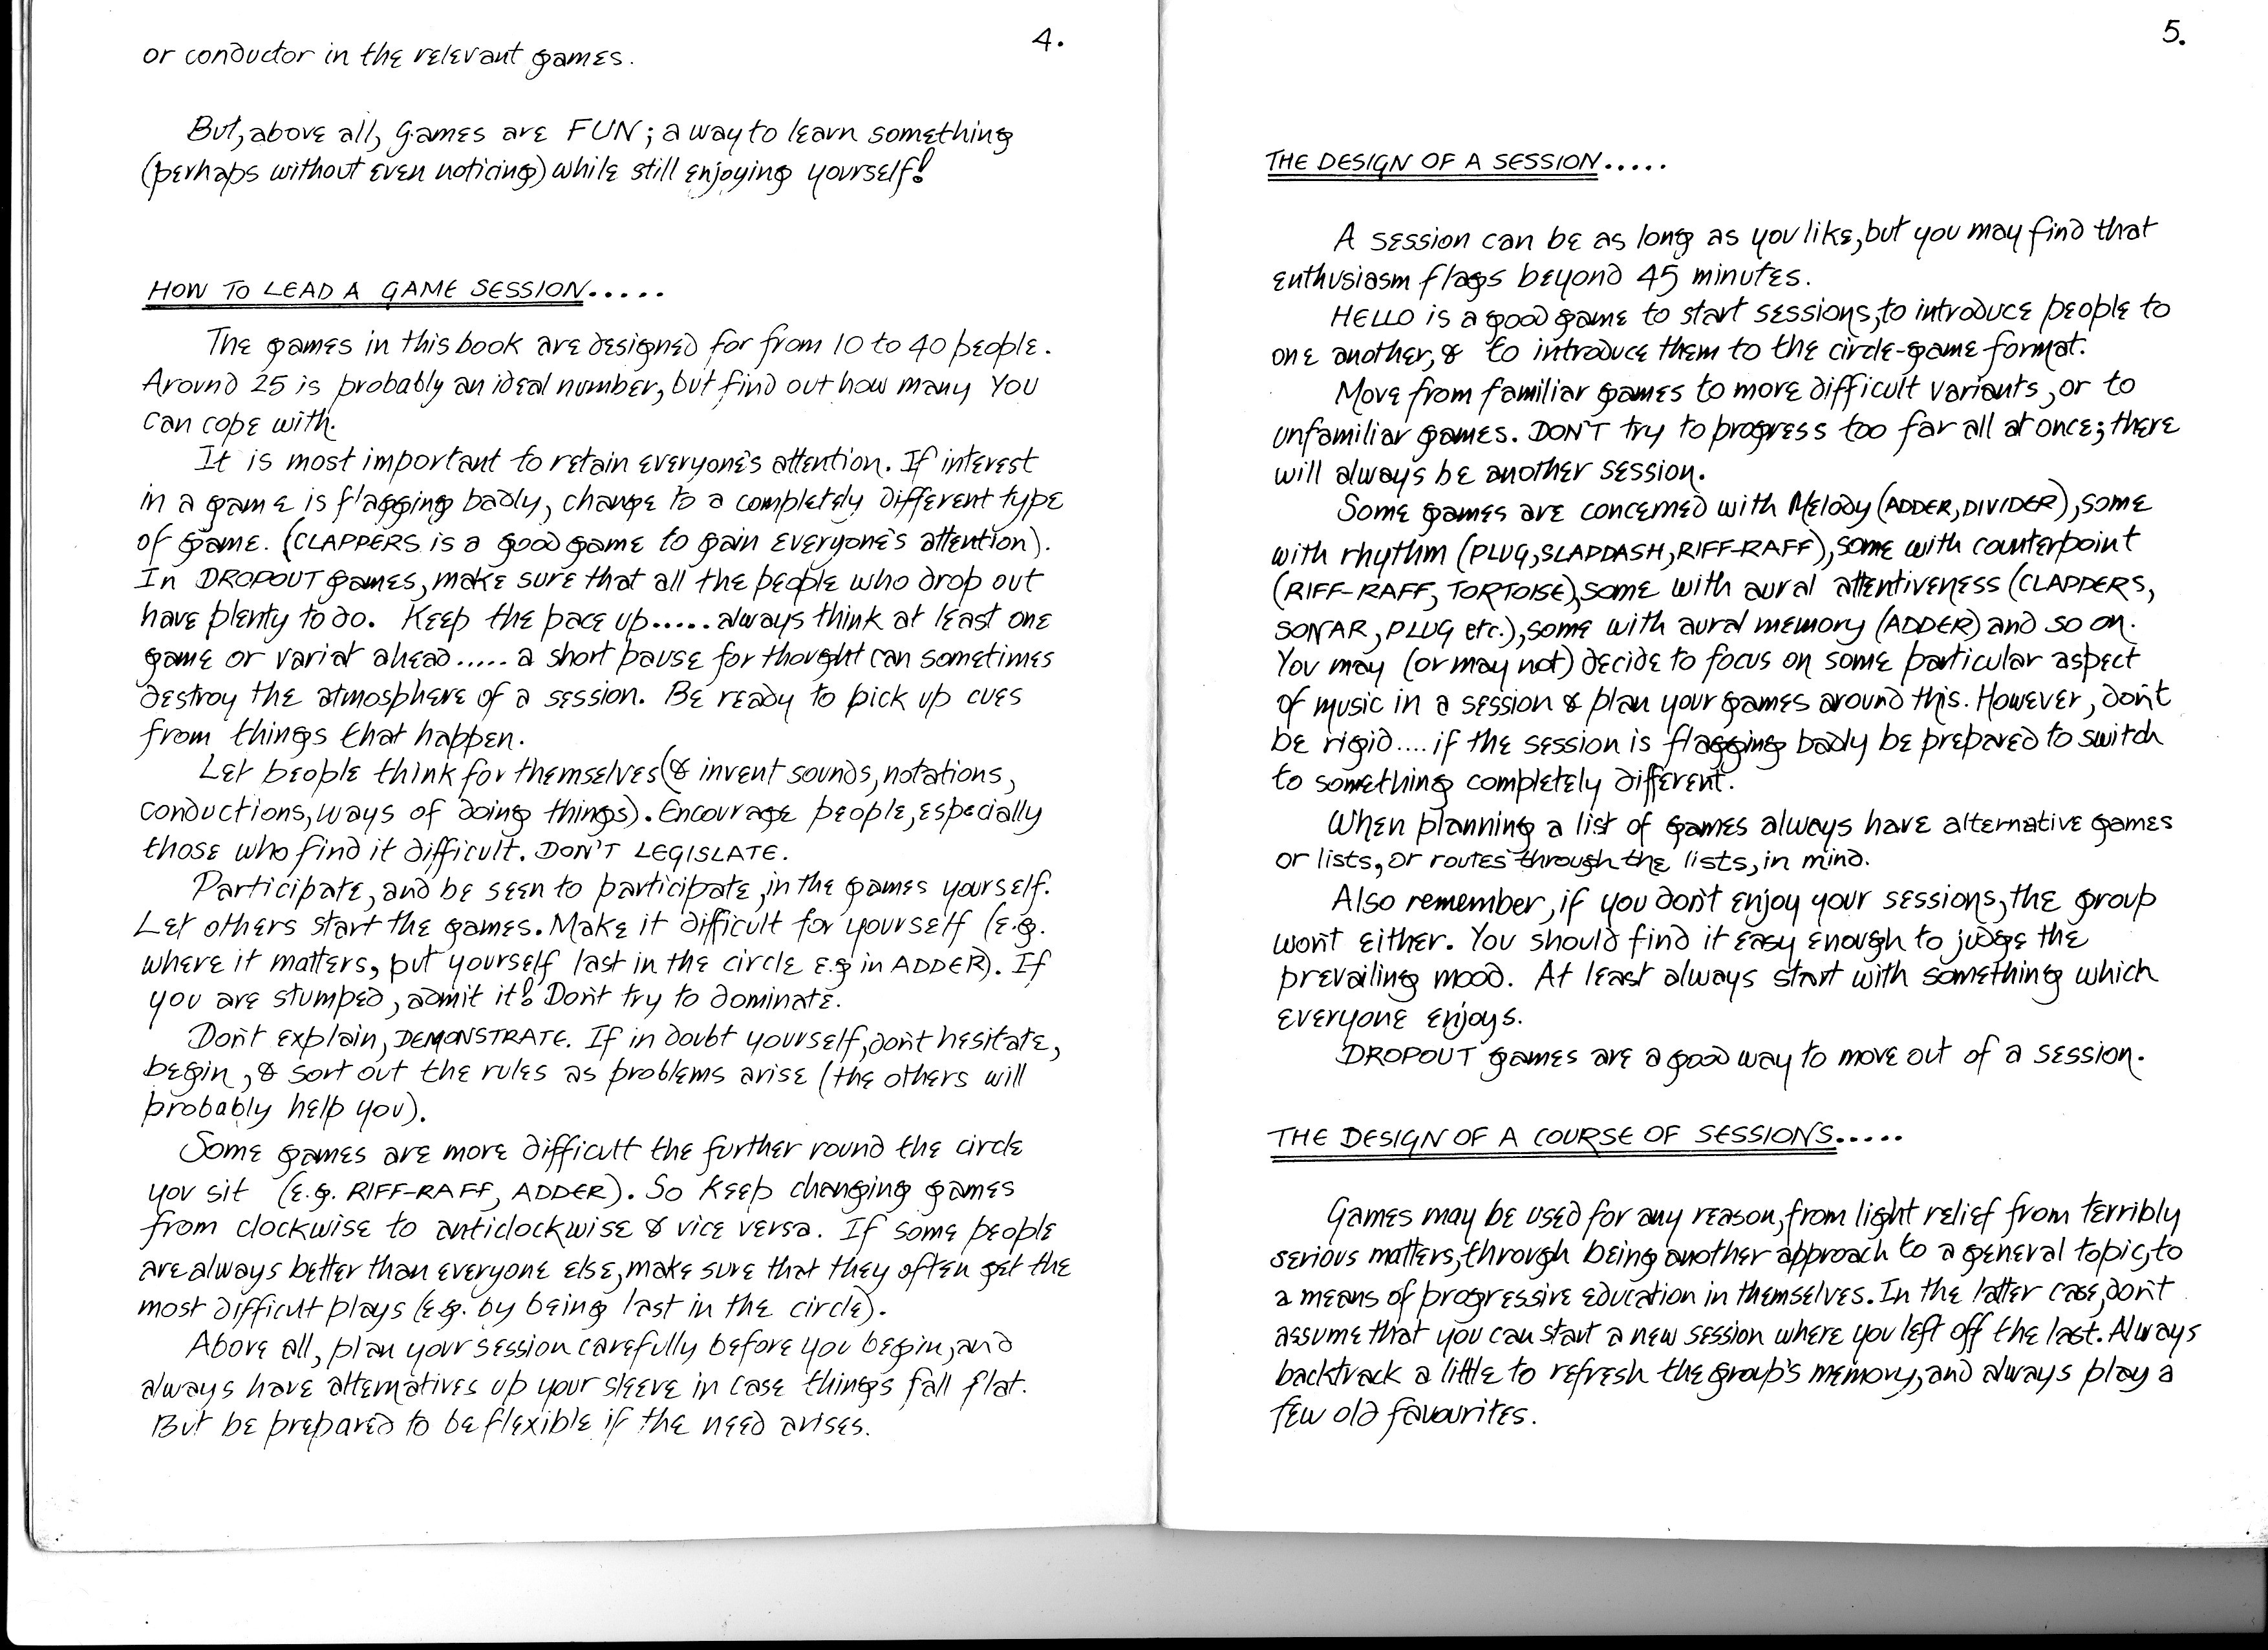 4.
or conductor in the relevant games.
But, above all, games are FUN; a way to learn something
(perhaps without even noticing) while still enjoying yourself!
HOW TO LEAD A GAME SESSION.....
The games in this book are designed for from 10 to 40 people.
Around 25 is probably an ideal number, but find out how many You
can cope with.
It is most important to retain everyone's attention. If interest
in a game is flagging badly, change to a completely different type
of game. (CLAPPERS is a good game to gain everyone's attention).
In DROPOUT games, make sure that all the people who drop out
have plenty to do. Keep the pace up..... always think at least one
game or variat ahead..... a short pause for thought can sometimes
destroy the atmosphere of a session. Be ready to pick up cues
from things that happen.
Let people think for themselves (& invent sounds, notations,
conductions, ways of doing things). Encourage people, especially
those who find it difficult. DON'T LEGISLATE.
Participate, and be seen to participate, in the games yourself.
Let others start the games. Make it difficult for yourself (e.g.
where it matters, put yourself last in the circle e.g in ADDER). If
you are stumped, admit it! Don't try to dominate.
Don't explain, DEMONSTRATE. If in doubt yourself, don't hesitate,
begin, & sort out the rules as problems arise (the others will
probably help you).
Some games are more difficult the further round the circle
you sit (e.g. RIFF-RAFF, ADDER). So keep changing games
from clockwise to anticlockwise & vice versa. If some people
are always better than everyone else, make sure that they often get the
most difficult plays (e.g. by being last in the circle).
Above all, plan your session carefully before you begin, and
always have alternatives up your sleeve in case things fall flat.
But be prepared to be flexible if the need arises.
5.
THE DESIGN OF A SESSION.....
A session can be as long as you like, but you may find that
enthusiasm flags beyond 45 minutes.
HELLO is a good game to start sessions, to introduce people to
one another, & to introduce them to the circle-game format.
Move from familiar games to more difficult variants, or to
unfamiliar games. DON'T try to progress too far all at once; there
will always be another session.
Some games are concerned with Melody (ADDER, DIVIDER), some
with rhythm (PLUG, SLAPDASH, RIFF-RAFF), some with counterpoint
(RIFF-RAFF, TORTOISE), some with aural attentiveness (CLAPPERS,
SONAR, PLUG etc.), some with aural memory (ADDER) and so on.
You may (or may not) decide to focus on some particular aspect
of music in a session & plan your games around this. However, don't
be rigid.... if the session is flagging badly be prepared to switch
to something completely different.
When planning a list of games always have alternative games
or lists, or routes through the lists, in mind.
Also remember, if you don't enjoy your sessions, the group
won't either. You should find it easy enough to judge the
prevailing mood. At least always start with something which
everyone enjoys.
DROPOUT games are a good way to move out of a session.
THE DESIGN OF A COURSE OF SESSIONS.....
Games may be used for any reason, from light relief from terribly
serious matters, through being another approach to a general topic, to
a means of progressive education in themselves. In the latter case, don't
assume that you can start a new session where you left off the last. Always
backtrack a little to refresh the group's memory, and always play a
few old favourites.